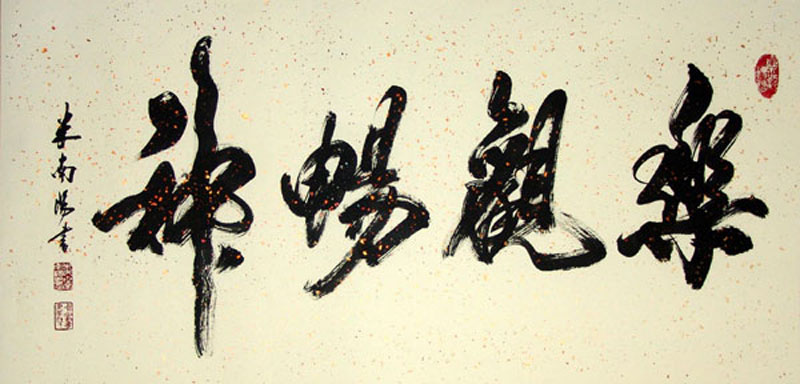 樂觀暢神
米南陽書